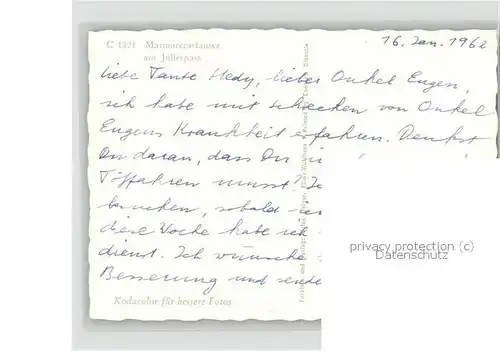 C 1521 Marmorerastausee
am Julierpass
16. Jan. 1962
Liebe Tante Hedy, lieber Onkel Eugen,
ich habe mit Schrecken von Onkel
Eugens Krankheit erfahren. Denkst
Du daran, dass Du
Töffahren musst?
brauchen, sobald
diese Woche habe ich
dienst. Ich wünsche
Besserung und sende
Kodacolor für bessere Fotos
privacy protection (c)
Datenschutz